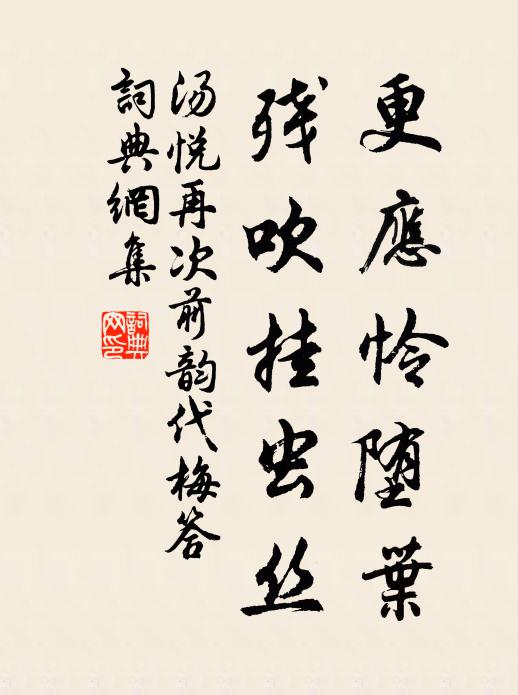 更應怜堕葉
残吹挂虫丝
汤悦再次前韵代梅答
詞典網集
詞典
网印